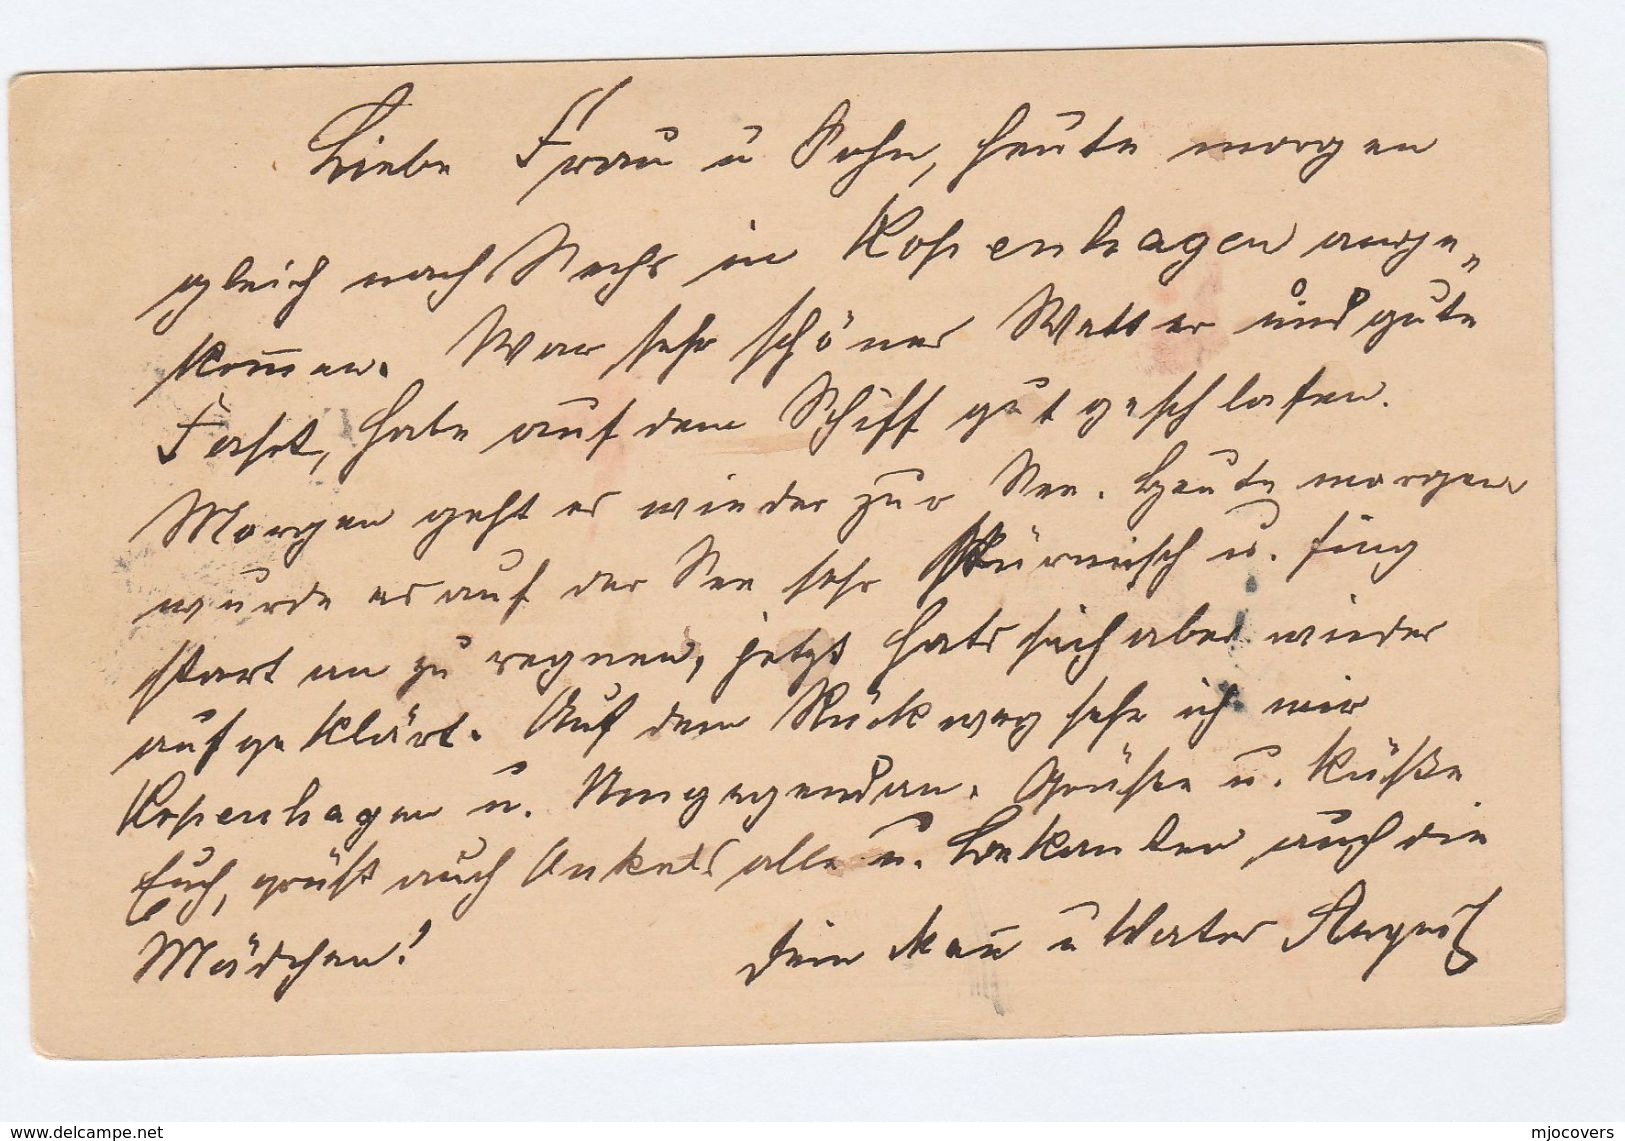 Liebe Frau u Sohn, heute morgen
gleich nach Sechs in Kopenhagen ange„
kom̅en. War sehr schönes Wetter und gute
Fahrt, habe auf dem Schiff gut geschlafen.
Morgen geht es wieder zur See. Heute morgen
wurde es auf der See sehr stürmisch u. fing
stark an zu regnen, jetzt hats sich aber wieder
aufgeklärt. Auf dem Rückweg sehe ich mir
Kopenhagen u. Umgegend an. Grüße u. Küße
Euch, grüßt auch alle u. Bekanten auch die
Mädchen! Dein Man̅ u Vater August
www.delcampe.net
mjocovers